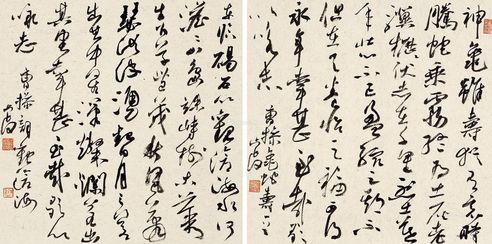 神龜雖壽猶有竟時
騰蛇乘霧終為土灰老
驥櫪伏志在千里烈士暮
年壯心不已盈縮之期不
但在天養怡之福可得
永年幸甚至哉歌
以詠志
曹操龜雖壽
東臨碣石以觀滄海水何
澹澹山島竦峙樹木叢
生百草豐茂秋風蕭
瑟洪波湧起日月之行若
出其中星漢燦爛若出
其里幸甚至哉歌以
詠志
曹操詩觀滄海